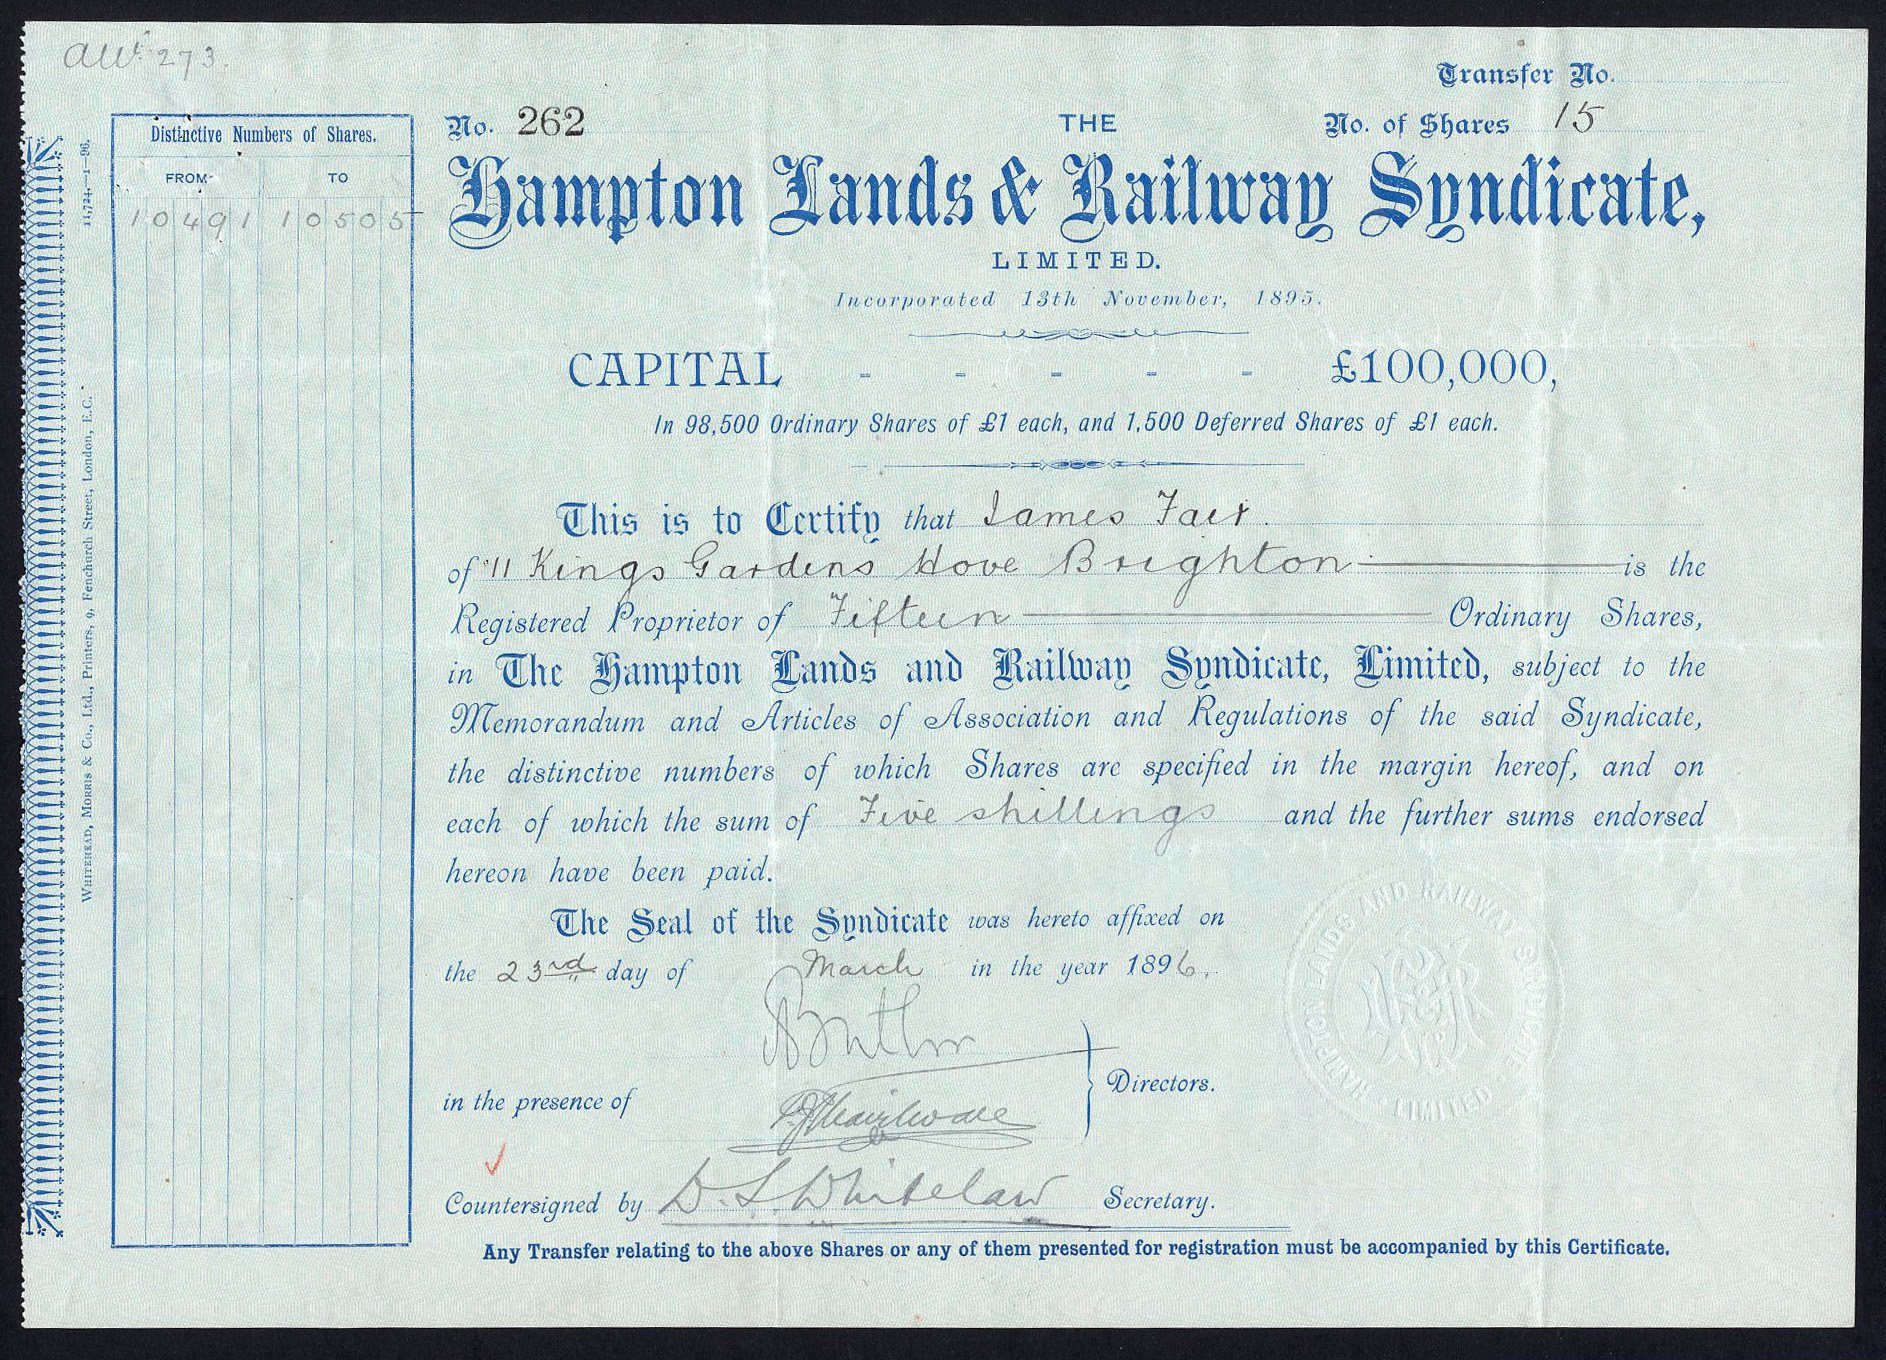 allt 273.
Transfer No.
No. 262
THE
No. of Shares 15
Hampton Lands & Railway Syndicate,
LIMITED.
Incorporated 13th November, 1895.
CAPITAL - - - - - £100,000,
In 98,500 Ordinary Shares of £1 each, and 1,500 Deferred Shares of £1 each.
Distinctive Numbers of Shares.
FROM TO
10491 10505
11,724.—1—96.
WHITEHEAD, MORRIS & Co., Ltd., Printers, 9, Fenchurch Street, London, E.C.
This is to Certify that James Fair.
of 11 Kings Gardens Hove Brighton is the
Registered Proprietor of Fifteen Ordinary Shares,
in The Hampton Lands and Railway Syndicate, Limited, subject to the
Memorandum and Articles of Association and Regulations of the said Syndicate,
the distinctive numbers of which Shares are specified in the margin hereof, and on
each of which the sum of Five shillings and the further sums endorsed
hereon have been paid.
The Seal of the Syndicate was hereto affixed on
the 23rd day of March in the year 1896.
in the presence of
Directors.
Countersigned by D. L. Whitelaw Secretary.
Any Transfer relating to the above Shares or any of them presented for registration must be accompanied by this Certificate.
HAMPTON LANDS AND RAILWAY SYNDICATE LIMITED